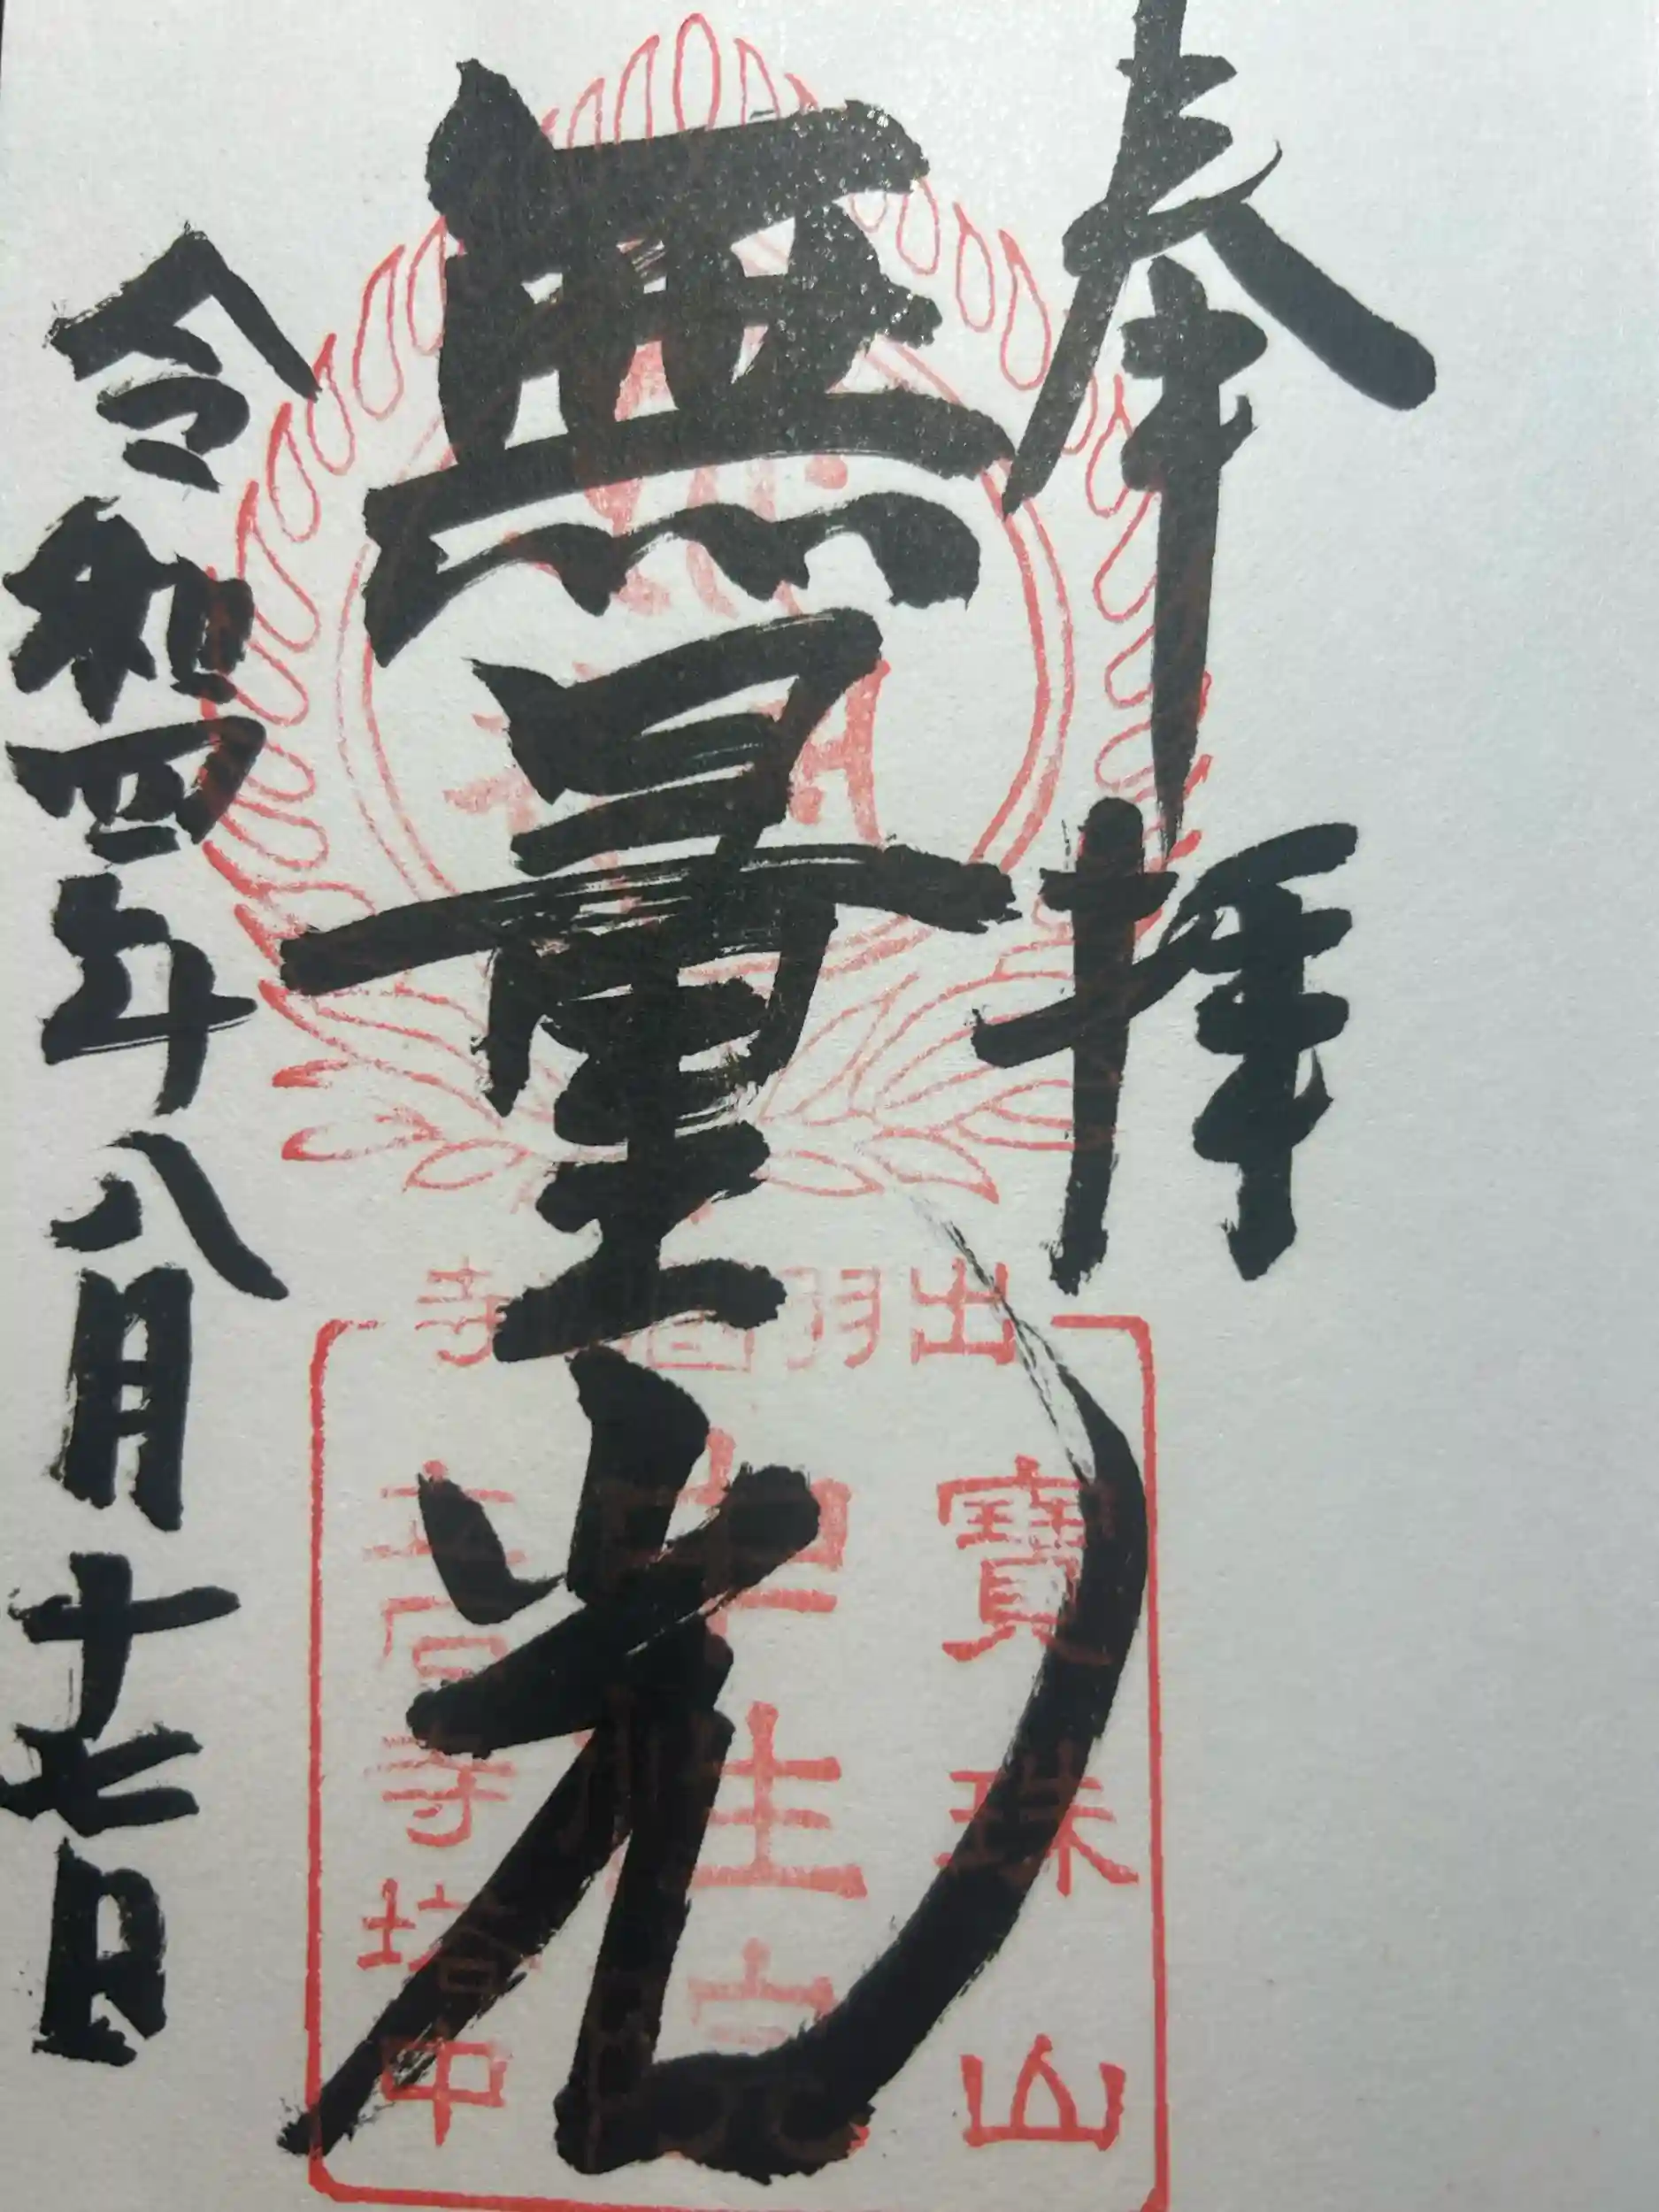 奉拝
無量光
令和四年八月十七日
出羽國
寺
寶珠山
立石寺塔中